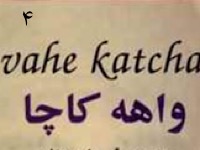 ۴
vahe katcha
واهه کاچا